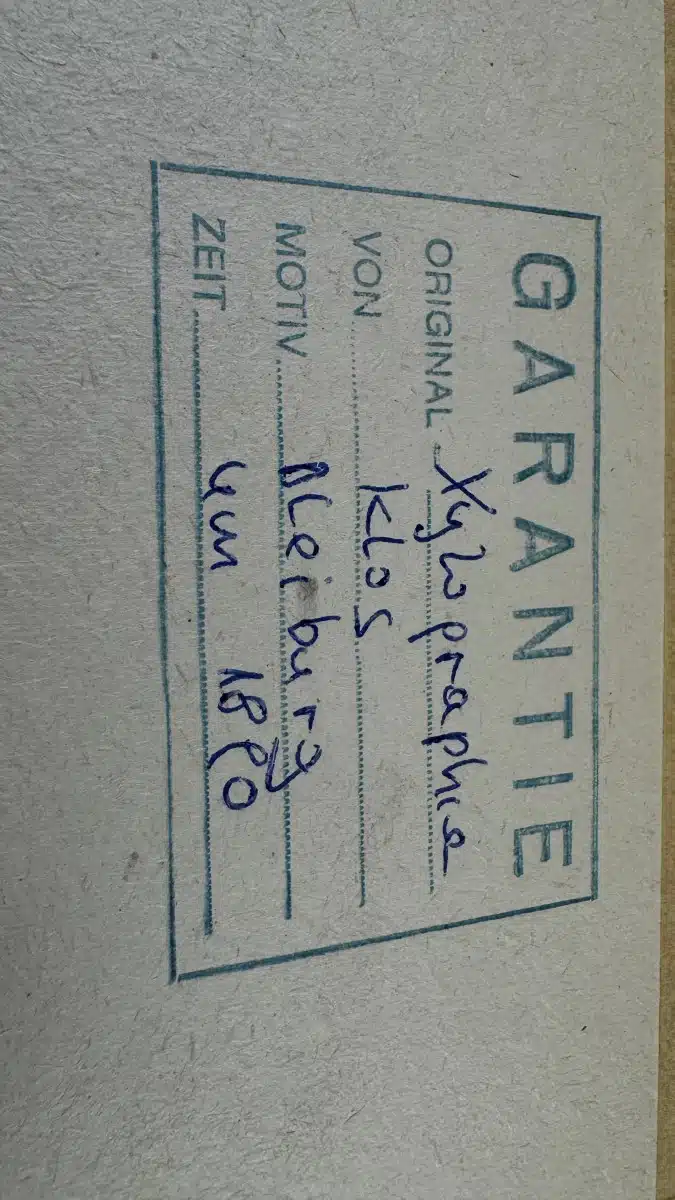 GARANTIE
ORIGINAL Xylographie
VON Klos
MOTIV Bleiburg
ZEIT um 1880